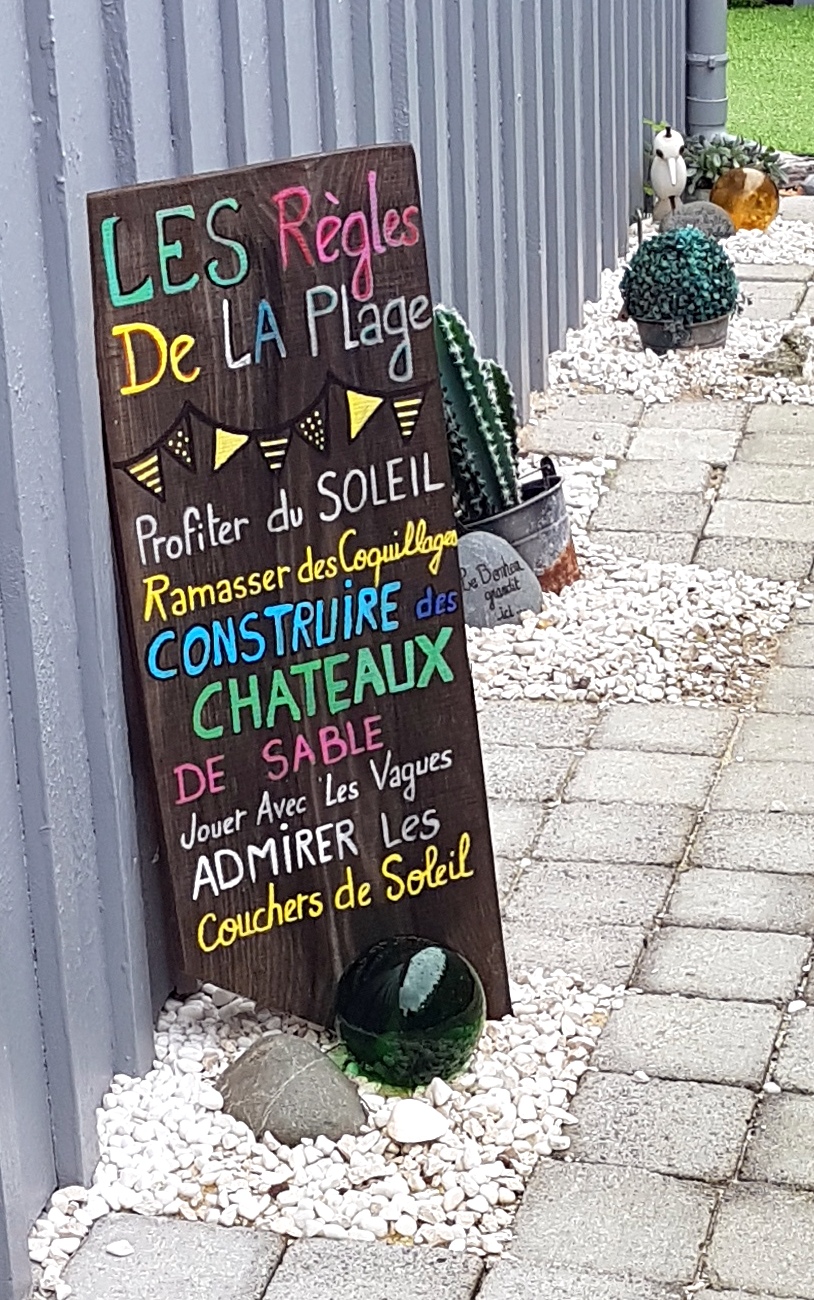 LES Règles
De LA PLage
Profiter du SOLEIL
Ramasser des Coquillages
CONSTRUiRE des
CHATEAUX
DE SABLE
Jouer Avec Les Vagues
ADMiRER Les
Couchers de Soleil
Le Bonheur
grandit
ici